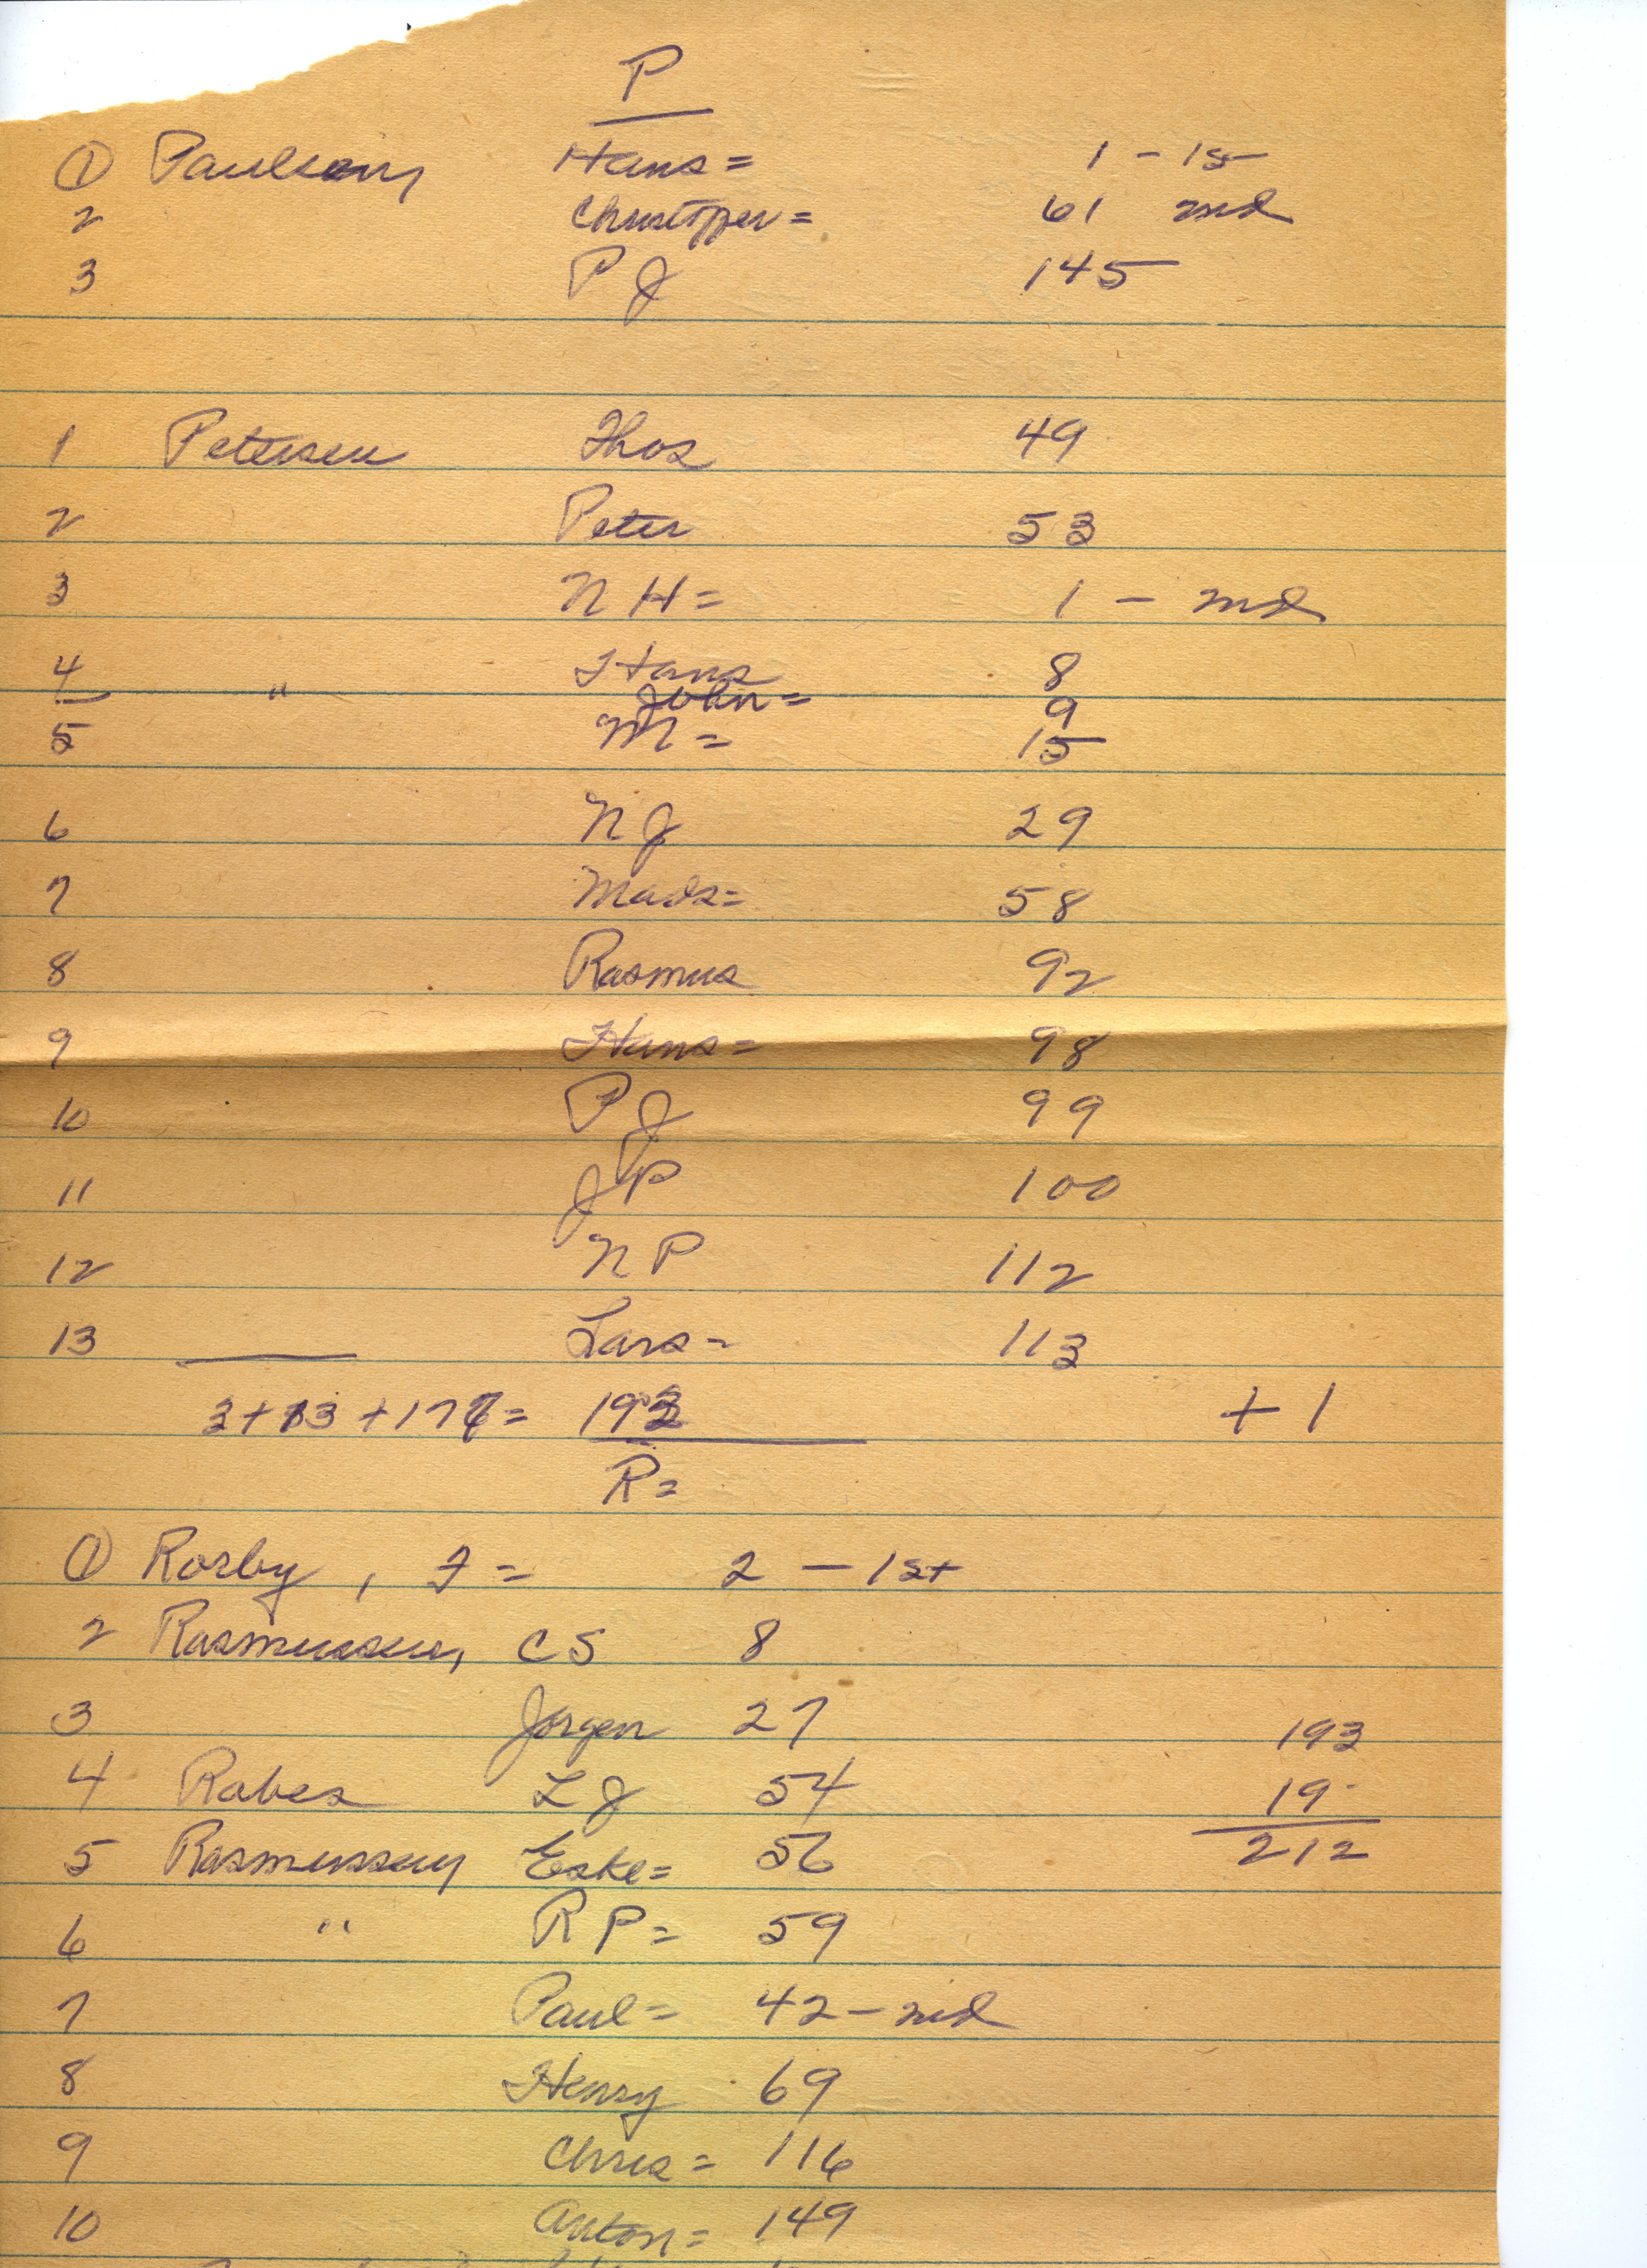 P
① Paulsen, Hans = 1 - 1s
2 Christopper = 61 md
3 P J 145
1 Petersen Thos 49
2 Peter 53
3 N H = 1 - md
4 Hans 8
" John = 9
5 M = 15
6 N J 29
7 Mads = 58
8 Rasmus 92
9 Hans = 98
10 P J 99
11 J P 100
12 N P 112
13 Lars - 113
3 + 13 + 177 = 193 + 1
R =
① Rorby, F = 2 - 1st
2 Rasmussen, C S 8
3 Jorgen 27 193
4 Rabes L J 54 19
5 Rasmussen Eske = 56 212
6 " R P = 59
7 Paul = 42 - md
8 Henry 69
9 Chris = 116
10 Anton = 149